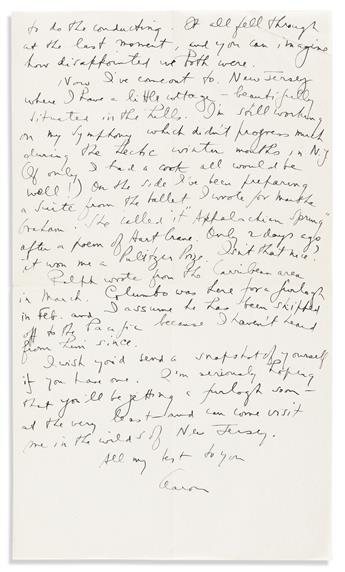 to do the conducting. It all fell through
at the last moment, and you can imagine
how disappointed we both were.
Now I've come out to New Jersey
where I have a little cottage – beautifully
situated in the hills. I'm still working
on my Symphony which didn't progress much
during the hectic winter months in NY
(If only I had a cook all would be
well!) On the side I've been preparing
a suite from the ballet I wrote for Martha
Graham. She called it "Appalachian Spring"
after a poem of Hart Crane. Only 2 days ago
it won me a Pulitzer Prize. Isn't that nice?
Ralph wrote from the Carribean area
in March. Columbo was here for a furlogh
in Feb. and I assume he has been shipped
off to the Pacific because I haven't heard
from him since.
I wish you'd send a snapshot of yourself
if you have one. I'm seriously hoping
that you'll be getting a furlogh soon –
at the very least – and can come visit
me in the wilds of New Jersey.
All my best to you
Aaron